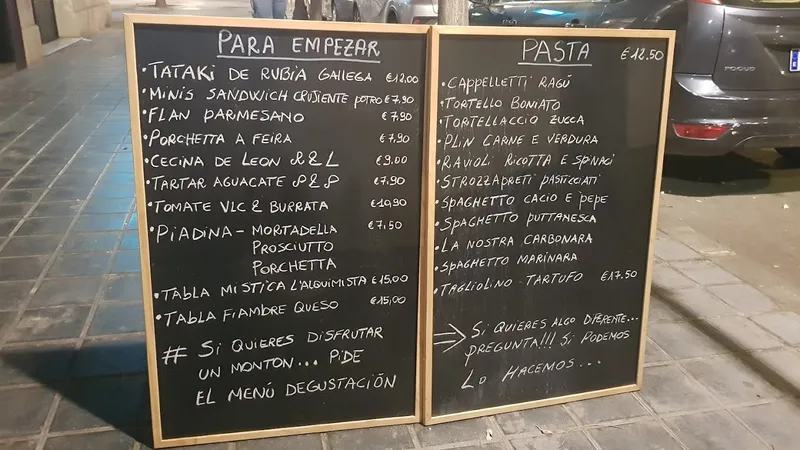 PARA EMPEZAR
• TATAKI DE RUBIA GALLEGA €12.00
• MINIS SANDWICH CRUJIENTE POTRO €7,90
• FLAN PARMESANO €7,90
• PORCHETTA A FEIRA €7,90
• CECINA DE LEON R & L €9,00
• TARTAR AGUACATE €7,90
• TOMATE VLC & BURRATA €10,90
• PIADINA - MORTADELLA €7,50
PROSCIUTTO
PORCHETTA
• TABLA MISTICA L'ALQUIMISTA €15,00
• TABLA FIAMBRE QUESO €15,00
# SI QUIERES DISFRUTAR
UN MONTON... PIDE
EL MENÚ DEGUSTACIÓN
PASTA €12.50
• CAPPELLETTI RAGÚ
• TORTELLO BONIATO
• TORTELLACCIO ZUCCA
• PLIN CARNE E VERDURA
• RAVIOLI RICOTTA E SPINACI
• STROZZAPRETI PASTICCIATI
• SPAGHETTO CACIO E PEPE
• SPAGHETTO PUTTANESCA
• LA NOSTRA CARBONARA
• SPAGHETTO MARINARA
• TAGLIOLINO - TARTUFO €17.50
⇒ SI QUIERES ALGO DIFERENTE...
PREGUNTA!!! SI PODEMOS
LO HACEMOS...
FOCUS